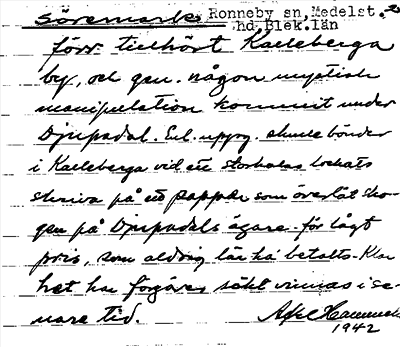 Söremark Ronneby sn, Medelst.
hd Blek.län
förr tillhört Kalleberga
by, och gen. någon mystisk
manipulation kommit under
Djupadal. Enl. uppg. skulle bönder
i Kalleberga vid ett storkalas lockats
skriva på ett papper som överlät sko-
gen på Djupadals ägare för lågt
pris, som aldrig lär ha betalts. Klar
het har förgäves sökt vinnas i se-
nare tid.
Axel
1942